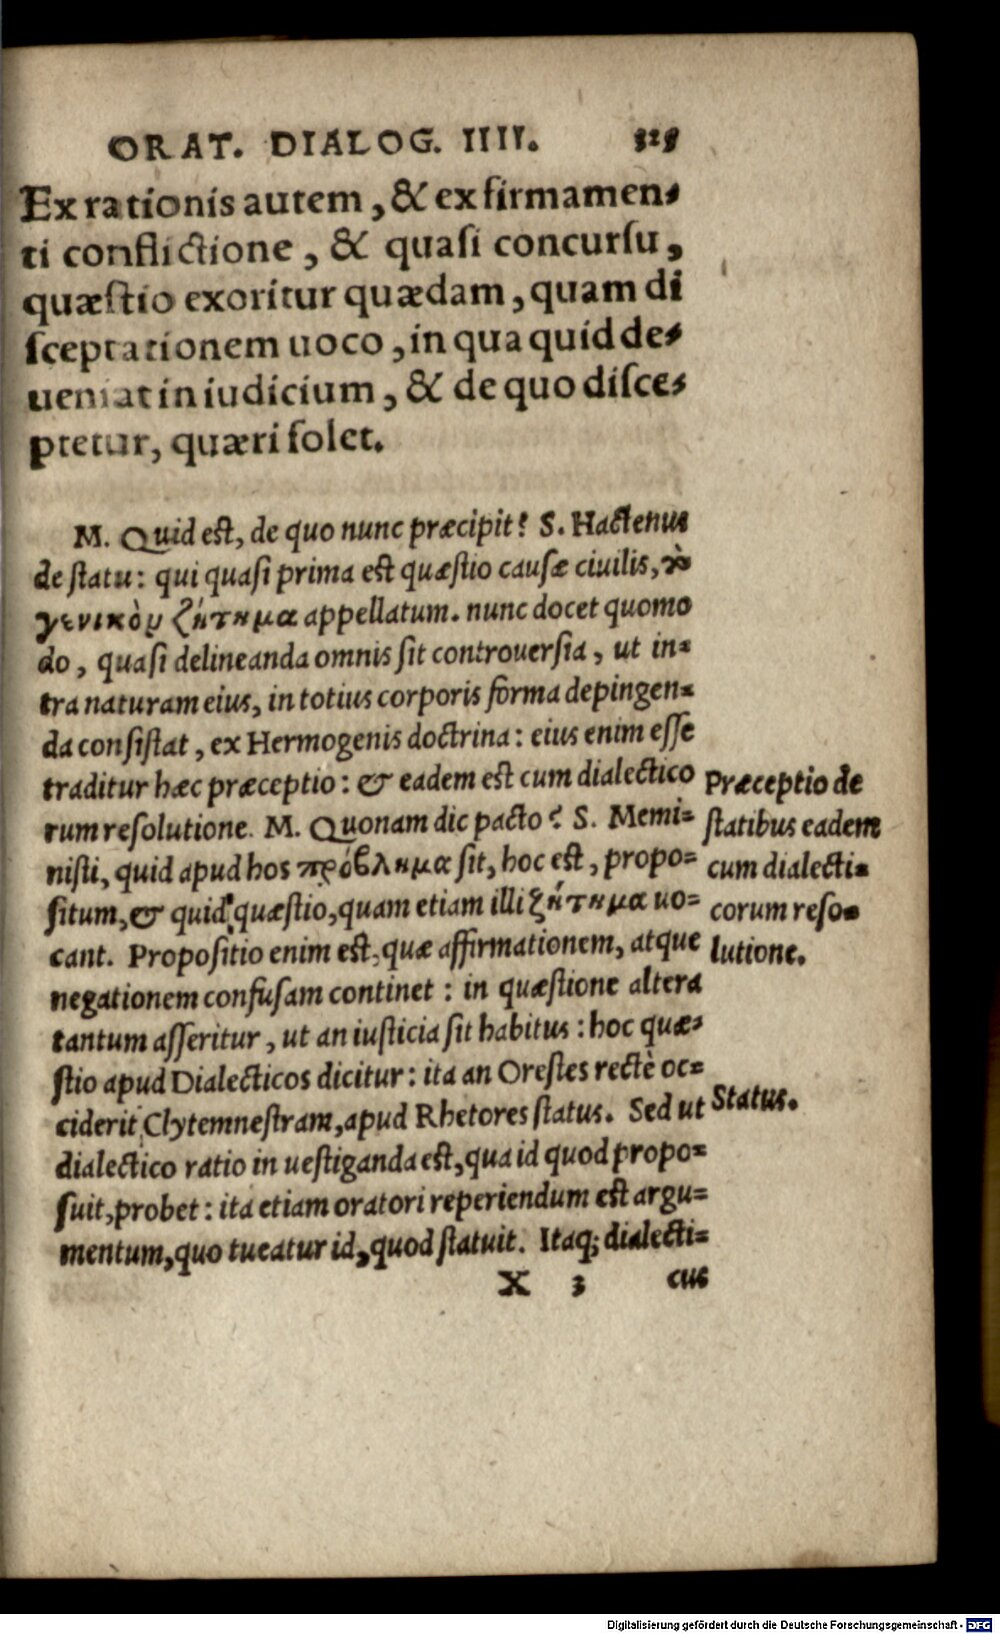 ORAT. DIALOG. IIII. 325
Ex rationis autem, & ex firmamen-
ti conflictione, & quasi concursu,
quæstio exoritur quædam, quam di
sceptationem uoco, in qua quid de-
ueniat in iudicium, & de quo disce-
ptetur, quæri solet.
M. Quid est, de quo nunc præcipit? S. Hactenus
de statu: qui quasi prima est quæstio causæ ciuilis, τὸ
γενικὸν ζήτημα appellatum. nunc docet quomo
do, quasi delineanda omnis sit controuersia, ut in-
tra naturam eius, in totius corporis forma depingen-
da consistat, ex Hermogenis doctrina: eius enim esse
traditur hæc præceptio: & eadem est cum dialectico
rum resolutione. M. Quonam dic pacto? S. Memi-
nisti, quid apud hos πρόβλημα sit, hoc est, propo-
situm, & quid quæstio, quam etiam illi ζήτημα uo-
cant. Propositio enim est, quæ affirmationem, atque
negationem confusam continet: in quæstione altera
tantum asseritur, ut an iusticia sit habitus: hoc quæ-
stio apud Dialecticos dicitur: ita an Orestes rectè oc-
ciderit Clytemnestram, apud Rhetores status. Sed ut
dialectico ratio inuestiganda est, qua id quod propo-
suit, probet: ita etiam oratori reperiendum est argu-
mentum, quo tueatur id, quod statuit. Itaq; dialecti-
X 3 cus
Præceptio de
statibus eadem
cum dialecti-
corum reso-
lutione.
Status.
Digitalisierung gefördert durch die Deutsche Forschungsgemeinschaft - DFG